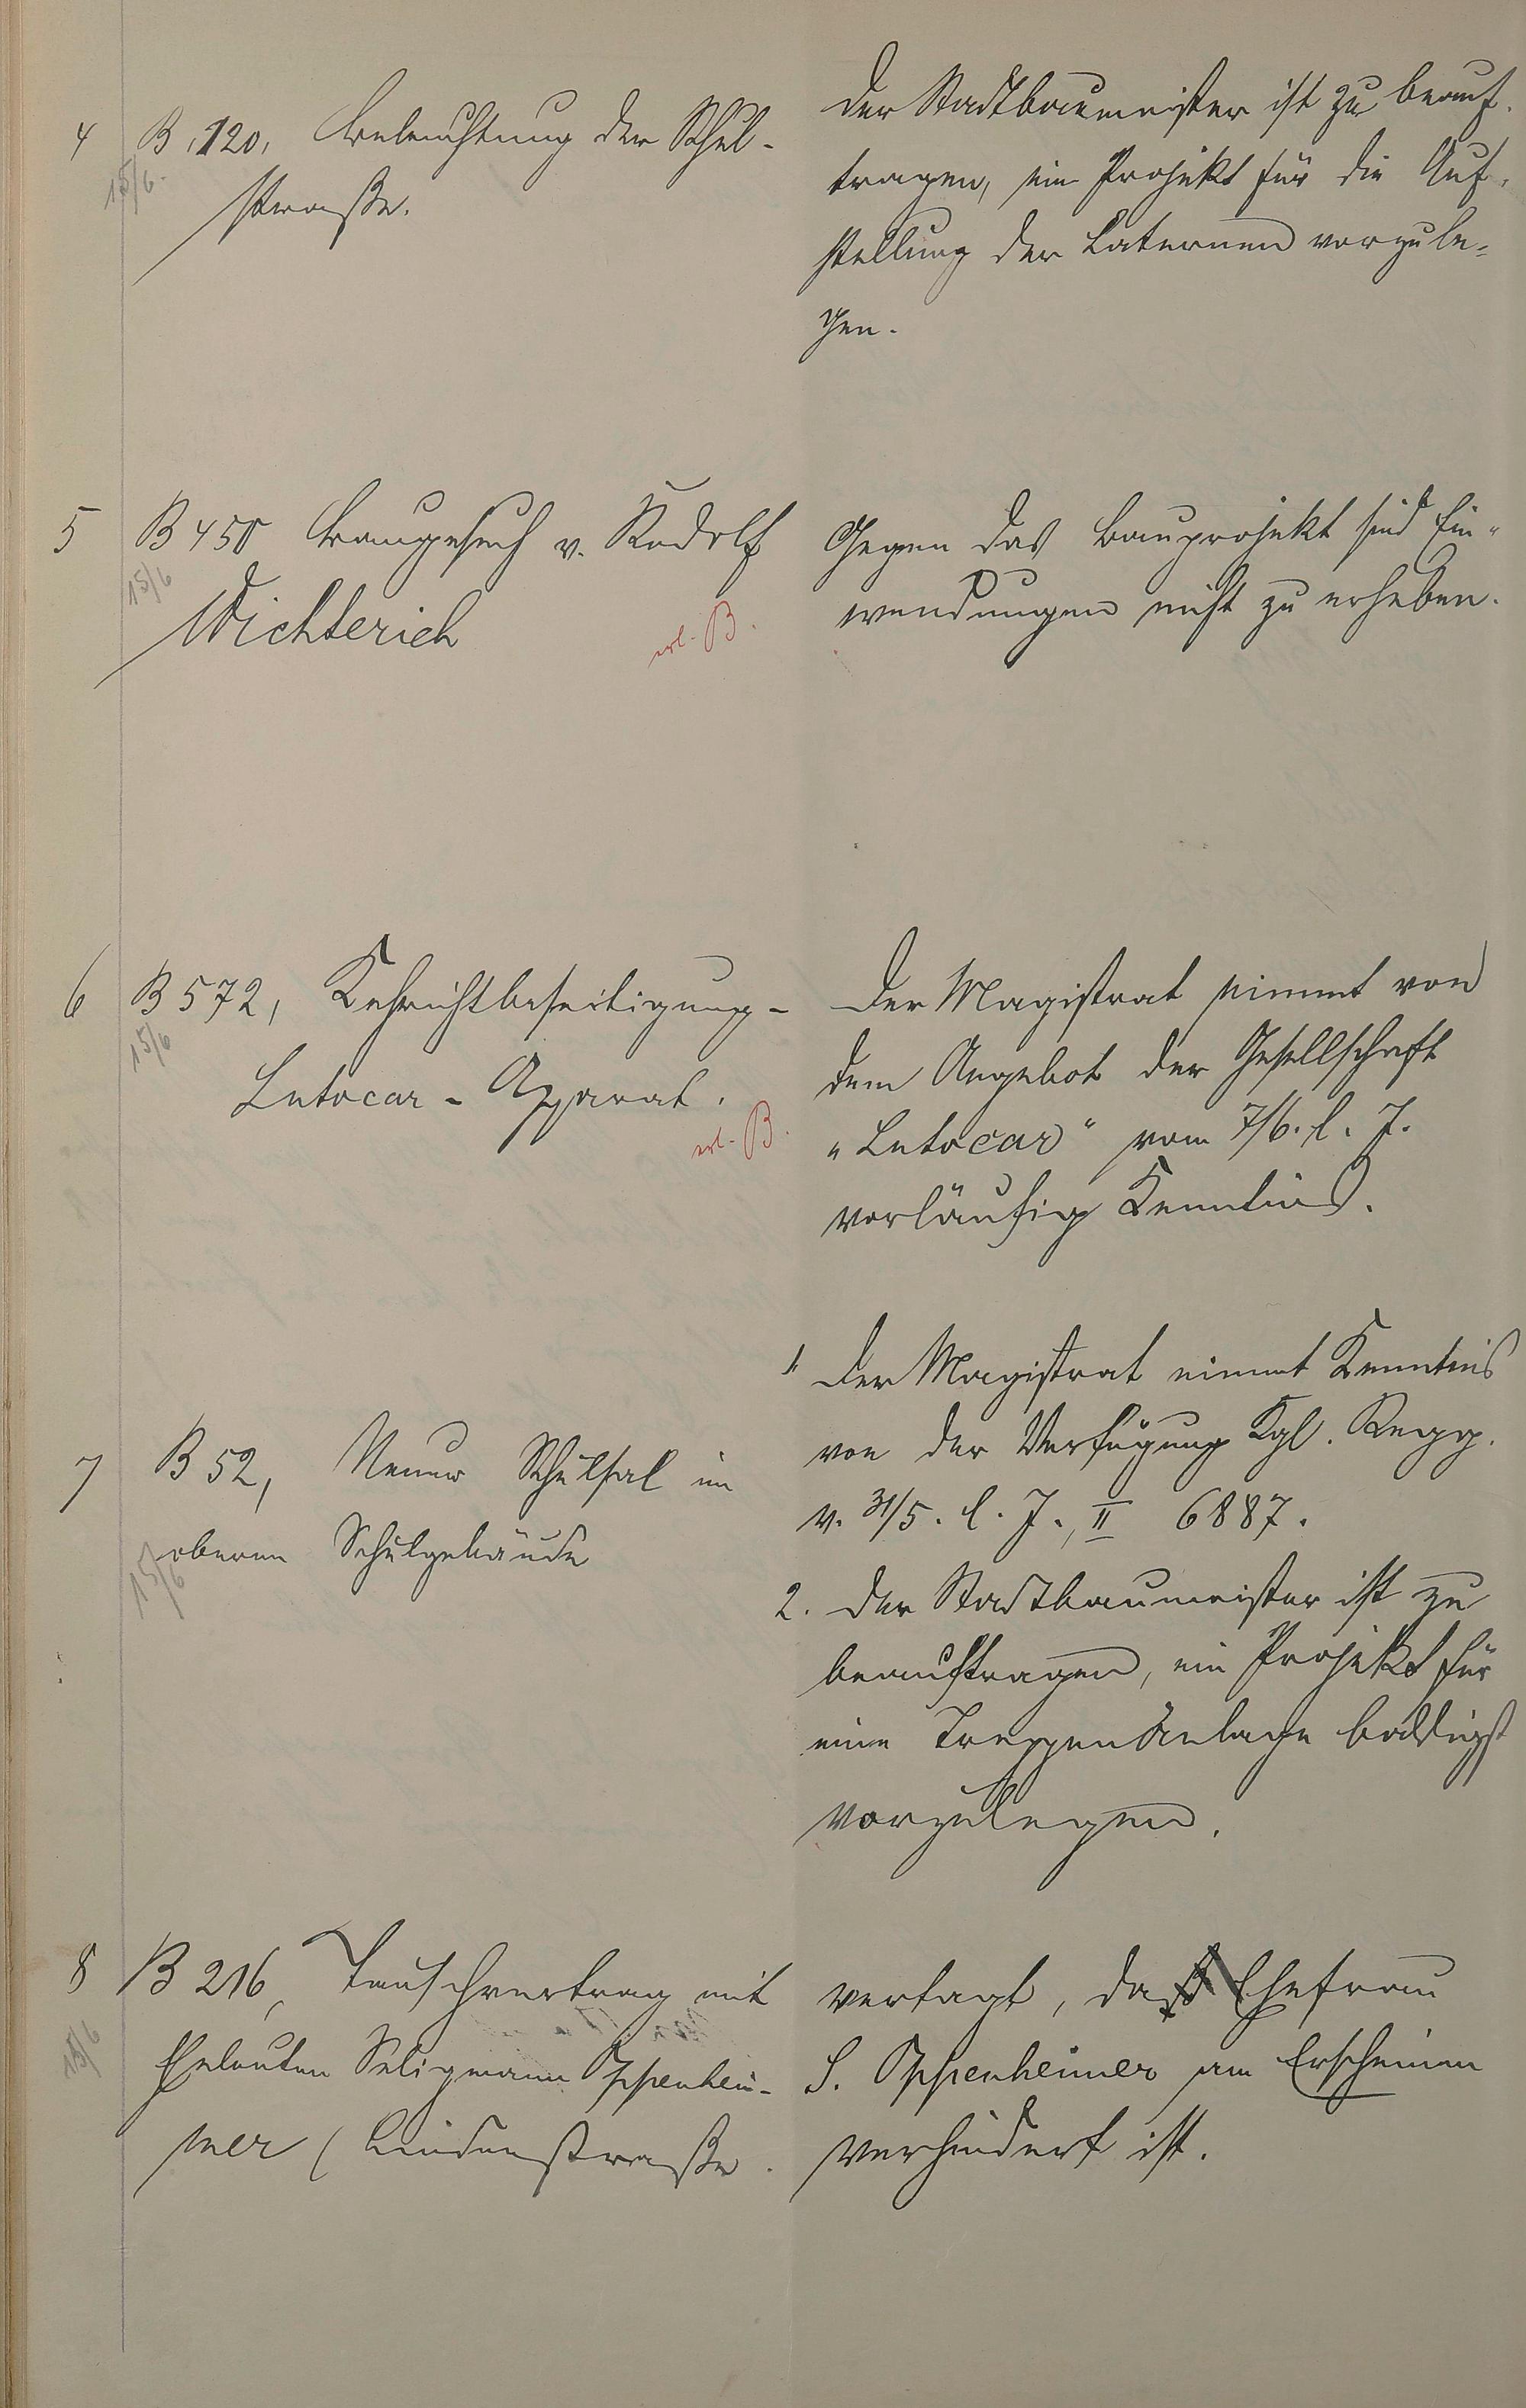 4 B. 120, Beleuchtung der Schul-
15/6.
straße.
Der Stadtbaumeister ist zu beauf-
tragen, ein Projekt für die Auf-
stellung der Laternen vorzule-
gen.
5 B 450 Baugesuch v. Rudolf
15/6
Wichterich
erl. B.
Gegen das Bauprojekt sind Ein-
wendungen nicht zu erheben.
6 B 572, Kehrichtbeseitigung-
15/6
Lutocar-Apparat.
erl. B.
Der Magistrat nimmt von
dem Angebot der Gesellschaft
„Lutocar“ vom 7/6. l. J.
vorläufig Kenntnis.
7 B 52, Neuer Schulsal im
oberen Schulgebäude
15/6
1. Der Magistrat nimmt Kenntnis
von der Verfügung Kgl. Regg.
v. 31/5. l. J., II 6887.
2. Der Stadtbaumeister ist zu
beauftragen, ein Projekt für
eine Treppenanlage baldigst
vorzulegen.
8 B 216, Tauschvertrag mit
15/6
Eheleuten Seligmann Oppenhei-
mer (Lindenstraße.
vertagt, da Ehefrau
S. Oppenheimer am Erscheinen
verhindert ist.